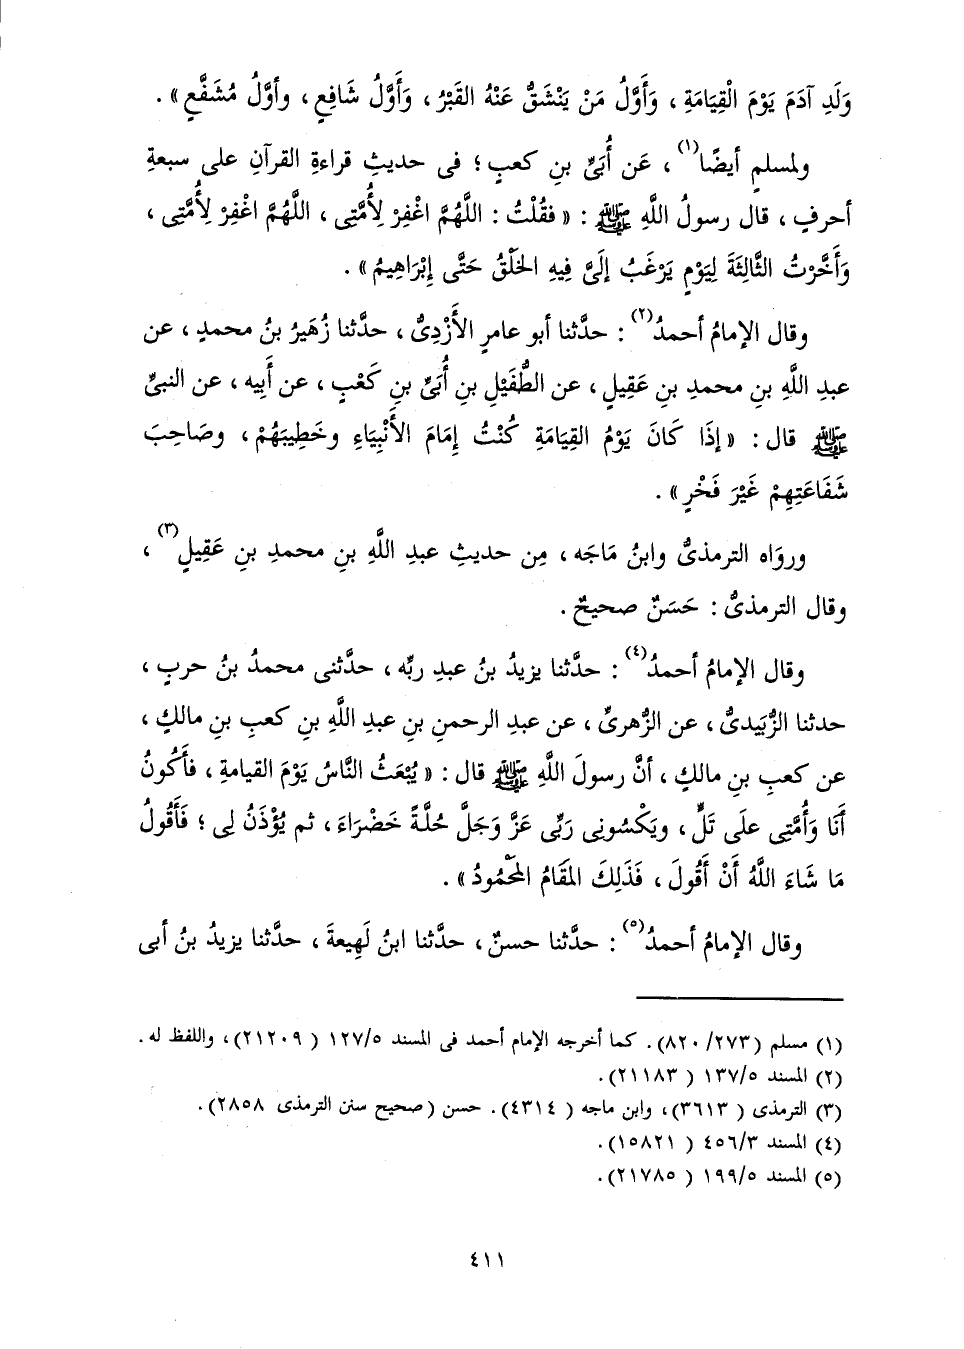 وَلَدِ آدَمَ يَوْمَ الْقِيَامَةِ ، وَأَوَّلُ مَنْ يَنْشَقُّ عَنْهُ القَبْرُ ، وَأَوَّلُ شَافِعٍ ، وأوَّلُ مُشَفَّعٍ » .
ولمسلمٍ أيضًا(١) ، عَن أُبَيِّ بنِ كعبٍ ؛ فى حديثِ قراءةِ القرآنِ على سبعةِ
أحرفٍ ، قال رسولُ اللَّهِ ﷺ : « فقُلْتُ : اللَّهُمَّ اغْفِرْ لِأُمَّتِى ، اللَّهُمَّ اغْفِرْ لِأُمَّتِى ،
وَأَخَّرْتُ الثَّالِثَةَ لِيَوْمٍ يَرْغَبُ إلَىَّ فِيهِ الخَلْقُ حَتَّى إبْرَاهِيمُ » .
وقال الإمامُ أحمدُ(٢) : حدَّثنا أبو عامرٍ الأَزْدِىُّ ، حدَّثنا زُهَيرُ بنُ محمدٍ ، عن
عبدِ اللَّهِ بنِ محمدِ بنِ عَقِيلٍ ، عن الطُّفَيْلِ بنِ أُبَىِّ بنِ كَعْبٍ ، عن أَبِيه ، عن النبىِّ
ﷺ قال : « إذَا كَانَ يَوْمُ القِيَامَةِ كُنْتُ إِمَامَ الأَنْبِيَاءِ وخَطِيبَهُمْ ، وصَاحِبَ
شَفَاعَتِهِمْ غَيْرَ فَخْرٍ » .
ورواه الترمذىُّ وابنُ مَاجَه ، مِن حديثِ عبدِ اللَّهِ بنِ محمدِ بنِ عَقِيلٍ(٣) ،
وقال الترمذىُّ : حَسَنٌ صحيحٌ .
وقال الإمامُ أحمدُ(٤) : حدَّثنا يزيدُ بنُ عبدِ ربِّه ، حدَّثنى محمدُ بنُ حربٍ ،
حدثنا الزُّبَيدىُّ ، عن الزُّهرىِّ ، عن عبدِ الرحمنِ بنِ عبدِ اللَّهِ بنِ كعبِ بنِ مالكٍ ،
عن كعبِ بنِ مالكٍ ، أنَّ رسولَ اللَّهِ ﷺ قال : « يُبْعَثُ النَّاسُ يَوْمَ القيامةِ ، فأَكُونُ
أَنَا وَأُمَّتِى علَى تَلٍّ ، ويَكْسُونِى رَبِّى عَزَّ وَجَلَّ حُلَّةً خَضْرَاءَ ، ثم يُؤْذَنُ لِى ؛ فَأَقُولُ
مَا شَاءَ اللَّهُ أَنْ أَقُولَ ، فَذَلِكَ المَقَامُ المَحْمُودُ » .
وقال الإمامُ أحمدُ(٥) : حدَّثنا حسنٌ ، حدَّثنا ابنُ لَهِيعةَ ، حدَّثنا يزيدُ بنُ أبى
(١) مسلم (٨٢٠/٢٧٣). كما أخرجه الإمام أحمد فى المسند ١٢٧/٥ ( ٢١٢٠٩)، واللفظ له .
(٢) المسند ١٣٧/٥ ( ٢١١٨٣).
(٣) الترمذى ( ٣٦١٣)، وابن ماجه ( ٤٣١٤). حسن (صحيح سنن الترمذى ٢٨٥٨).
(٤) المسند ٤٥٦/٣ ( ١٥٨٢١).
(٥) المسند ١٩٩/٥ ( ٢١٧٨٥).
٤١١